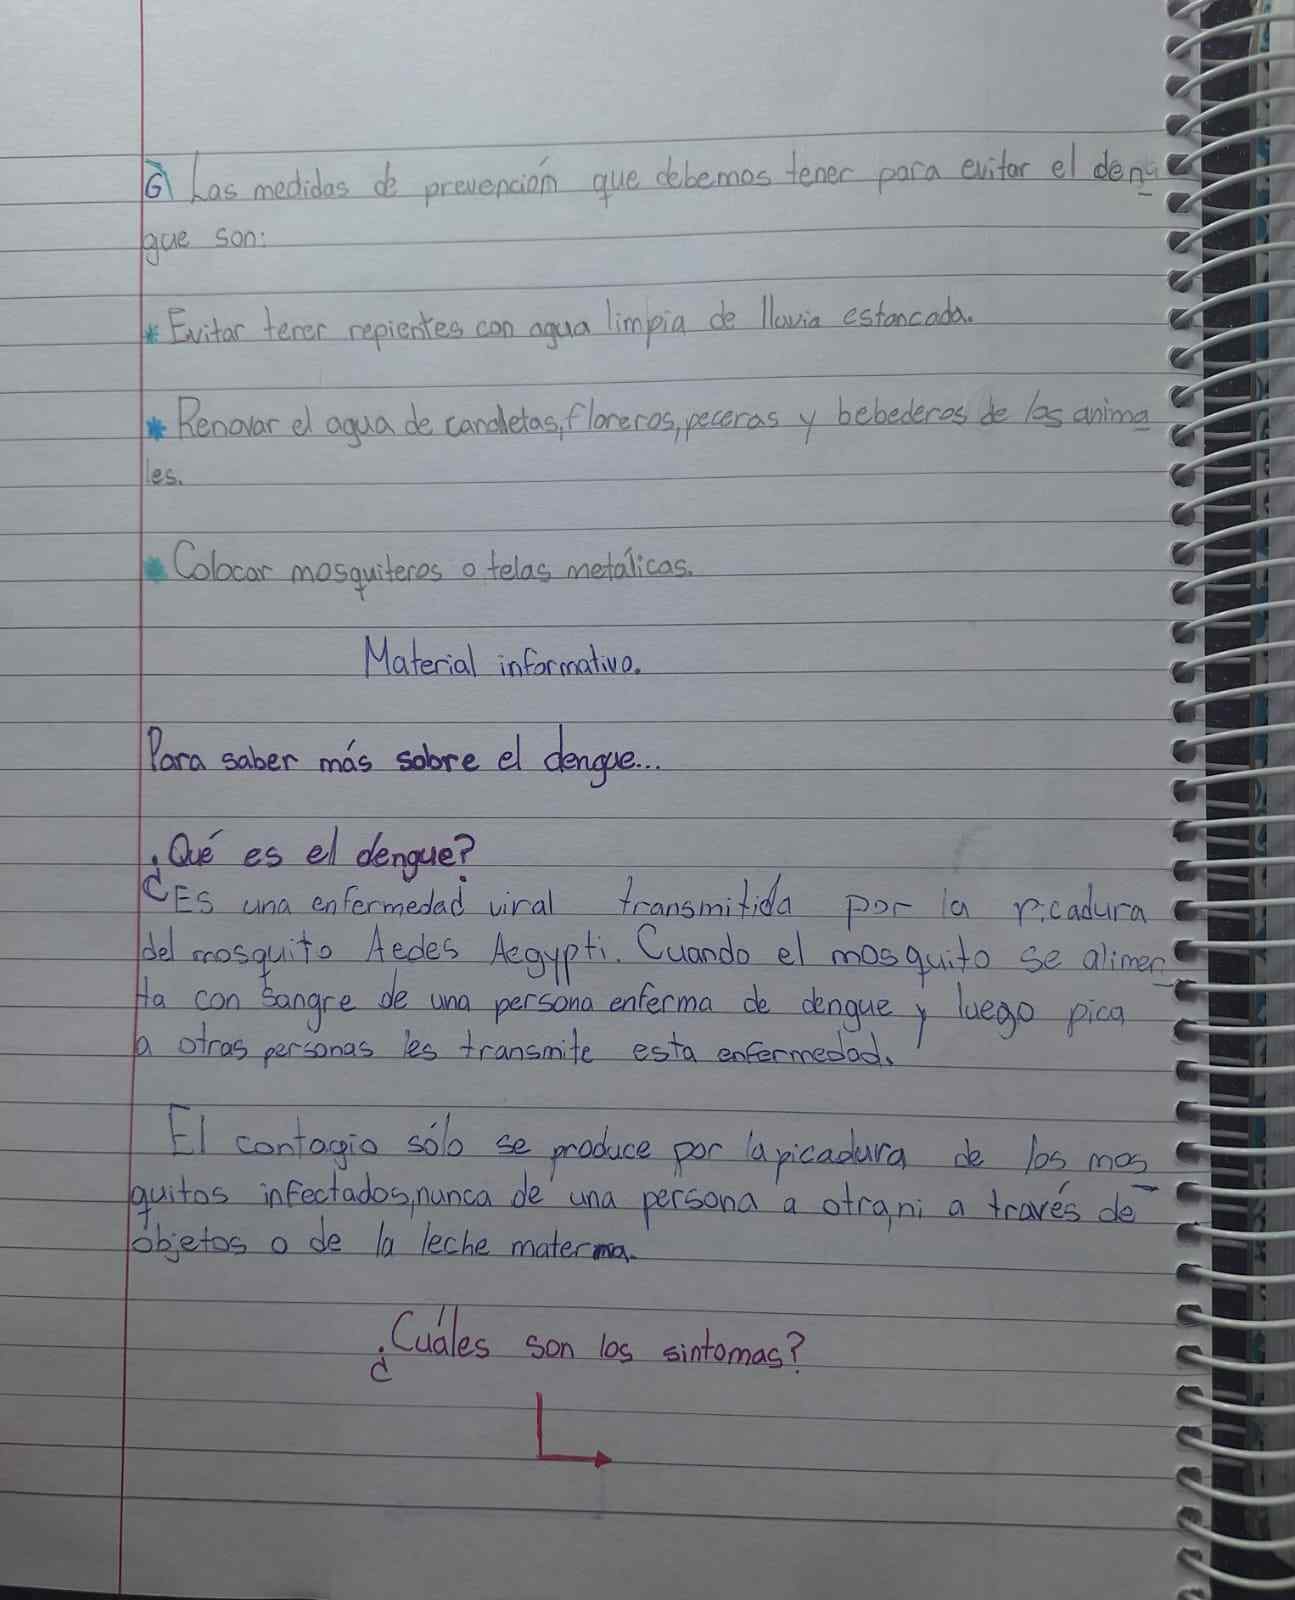 6) Las medidas de prevención que debemos tener para evitar el den
gue son:
* Evitar tener repientes con agua limpia de lluvia estancada.
* Renovar el agua de candletas, floreros, peceras y bebederos de los anima
les.
* Colocar mosquiteros o telas metálicas.
Material informativo.
Para saber más sobre el dengue...
¿Qué es el dengue?
Es una enfermedad viral transmitida por la picadura
del mosquito Aedes Aegypti. Cuando el mosquito se alimen
ta con sangre de una persona enferma de dengue y luego pica
a otras personas les transmite esta enfermedad.
El contagio sólo se produce por la picadura de los mos
quitos infectados, nunca de una persona a otra, ni a través de
objetos o de la leche materna.
¿Cuáles son los sintomas?